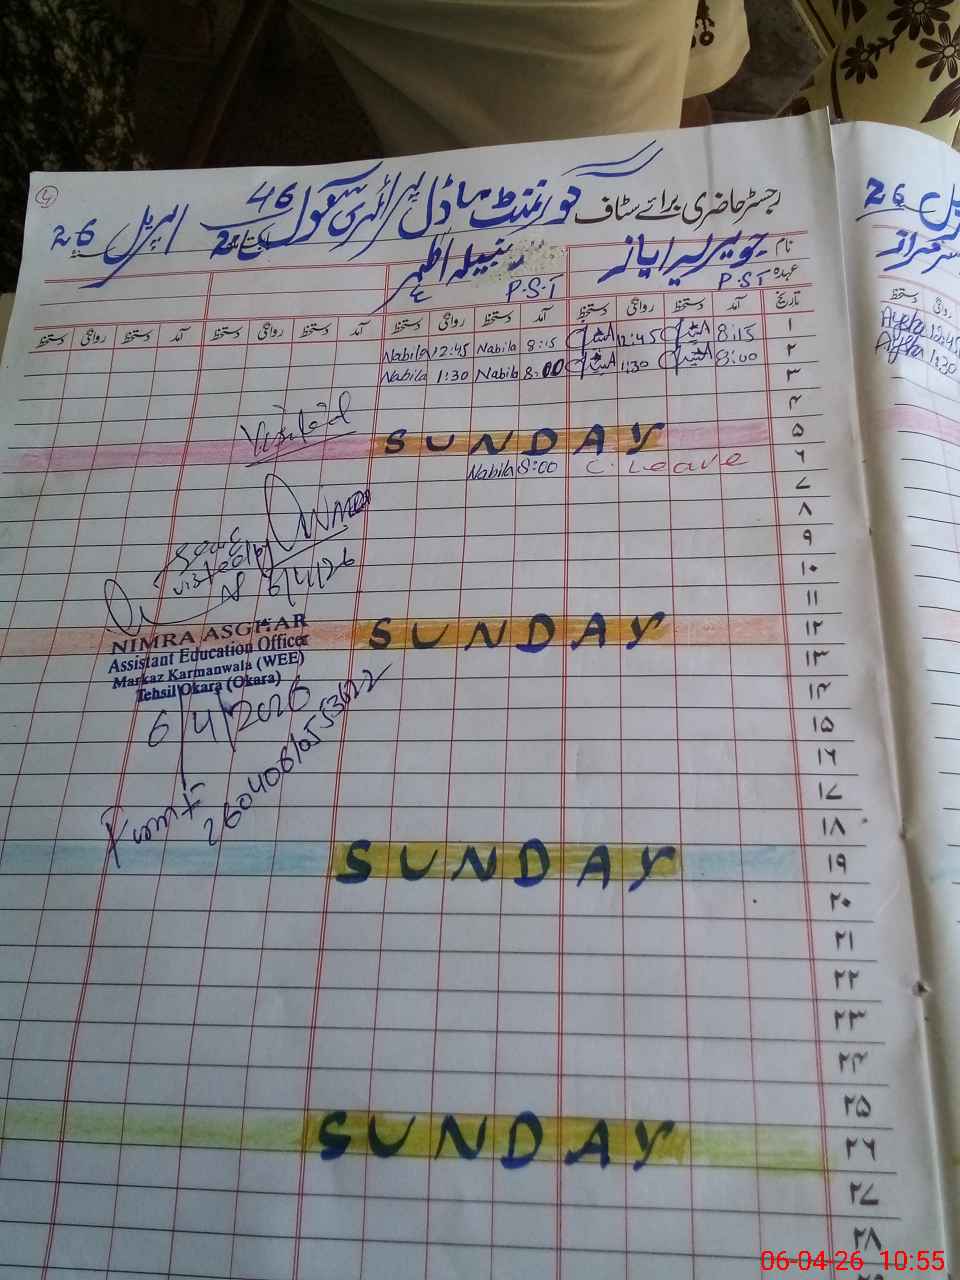 رجسٹر حاضری برائے سٹاف گورنمنٹ ماڈل پرائمری سکول 46 اپریل 26
نام جویریہ ایاز نبیلہ اظہر
عہدہ P.S.T P.S.T
تاریخ آمد دستخط روانگی دستخط آمد دستخط روانگی دستخط آمد دستخط روانگی دستخط آمد دستخط روانگی دستخط
۱ 8:15 12:45 8:15 Nabila 12:45 Nabila
۲ 8:00 1:30 8:00 Nabila 1:30 Nabila
۳
۴
Visited
۵ SUNDAY
۶ C. Leave 8:00 Nabila
۷
۸
۹
۱۰
6/4/26
۱۱
۱۲ SUNDAY
NIMRA ASGHAR
Assistant Education Officer
Markaz Karmanwala (WEE)
Tehsil Okara (Okara)
۱۳
۱۴
6/4/2026
۱۵
۱۶
۱۷
۱۸
۱۹ SUNDAY
۲۰
۲۱
۲۲
۲۳
۲۴
۲۵
۲۶ SUNDAY
۲۷
۲۸
26
دستخط
Ayesha 12:45
Ayesha 1:30
06-04-26 10:55